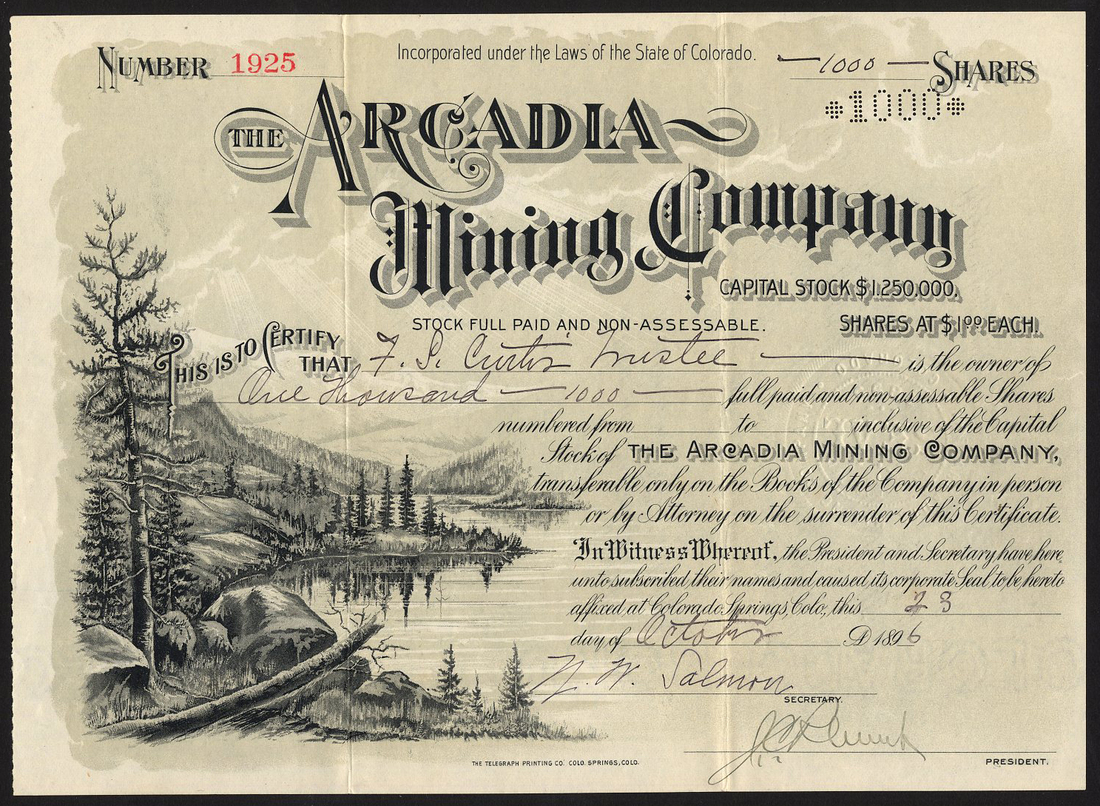 NUMBER 1925
Incorporated under the Laws of the State of Colorado.
1000 SHARES
*1000*
THE ARCADIA
Mining Company
CAPITAL STOCK $1.250.000.
STOCK FULL PAID AND NON-ASSESSABLE.
SHARES AT $1.00 EACH.
THIS IS TO CERTIFY THAT F. S. Curtis Trustee is the owner of
One Thousand — 1000 — full paid and non-assessable Shares
numbered from to inclusive of the Capital
Stock of THE ARCADIA MINING COMPANY,
transferable only on the Books of the Company in person
or by Attorney on the surrender of this Certificate.
In Witness Whereof, the President and Secretary have here
unto subscribed their names and caused its corporate Seal to be hereto
affixed at Colorado Springs, Colo, this 23
day of October D 1896
N. W. Salmon
SECRETARY.
PRESIDENT.
THE TELEGRAPH PRINTING CO. COLO. SPRINGS, COLO.